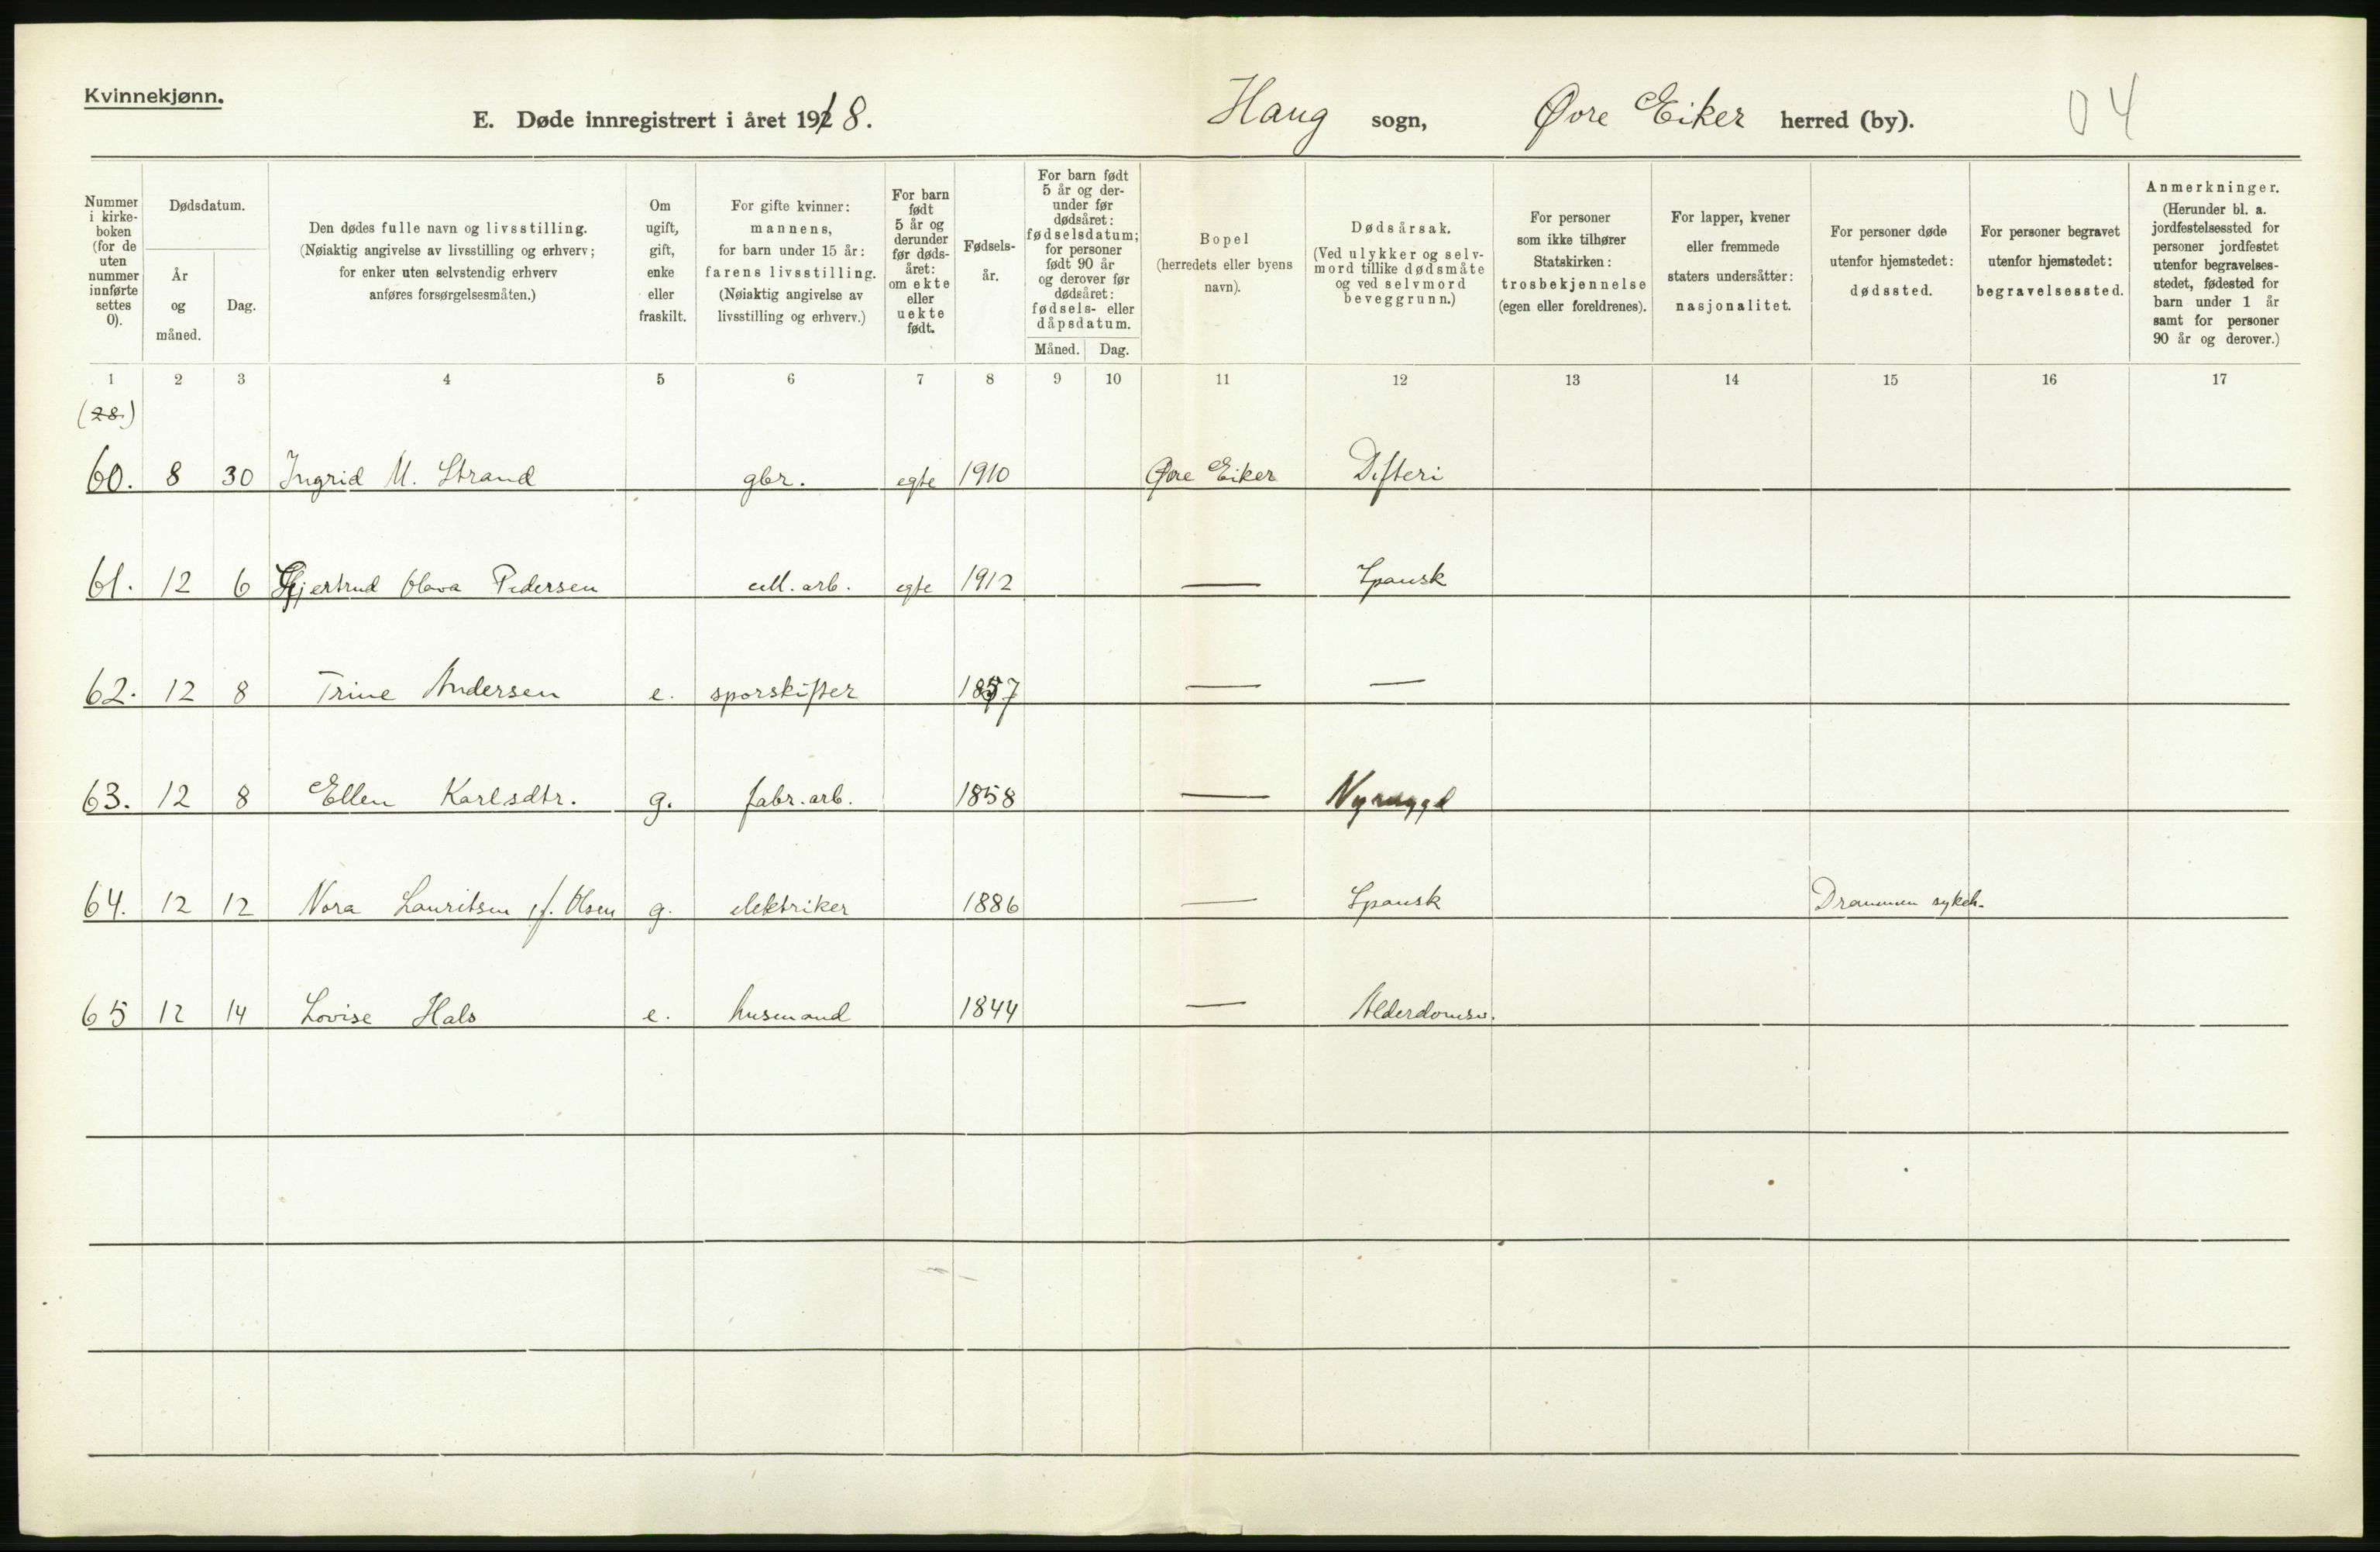 Kvinnekjønn.
E. Døde innregistrert i året 1918. Haug sogn, Øvre Eiker herred (by). 04
Nummer i kirke-boken (for de uten nummer innførte settes 0).
Dødsdatum.
År og måned.
Dag.
Den dødes fulle navn og livsstilling.
(Nøiaktig angivelse av livsstilling og erhverv;
for enker uten selvstendig erhverv
anføres forsørgelsesmåten.)
Om ugift, gift, enke eller fraskilt.
For gifte kvinner:
mannens,
for barn under 15 år:
farens livsstilling.
(Nøiaktig angivelse av
livsstilling og erhverv.)
For barn født 5 år og derunder før døds-året: om ekte eller uekte født.
Fødsels-år.
For barn født 5 år og der-under før dødsåret: fødselsdatum; for personer født 90 år og derover før dødsåret: fødsels- eller dåpsdatum.
Måned. Dag.
Bopel
(herredets eller byens
navn).
Dødsårsak.
(Ved ulykker og selv-
mord tillike dødsmåte
og ved selvmord
beveggrunn.)
For personer
som ikke tilhører
Statskirken:
trosbekjennelse
(egen eller foreldrenes).
For lapper, kvener
eller fremmede
staters undersåtter:
nasjonalitet.
For personer døde
utenfor hjemstedet:
dødssted.
For personer begravet
utenfor hjemstedet:
begravelsessted.
Anmerkninger.
(Herunder bl. a.
jordfestelsessted for
personer jordfestet
utenfor begravelses-
stedet, fødested for
barn under 1 år
samt for personer
90 år og derover.)
1 2 3 4 5 6 7 8 9 10 11 12 13 14 15 16 17
(28.)
60. 8 30 Ingrid M. Strand gbr. egte 1910 Øvre Eiker Difteri
61. 12 6 Gjertrud Olava Pedersen cell. arb. egte 1912 — Spansk
62. 12 8 Trine Andersen e. sporskifter 1857 — —
63. 12 8 Ellen Karlsdtr. g. fabr. arb. 1858 —
64. 12 12 Nora Lauritsen f. Olsen g. elektriker 1886 — Spansk Drammen sykeh.
65 12 14 Lovise Hals e. husmand 1844 — Alderdomsv.